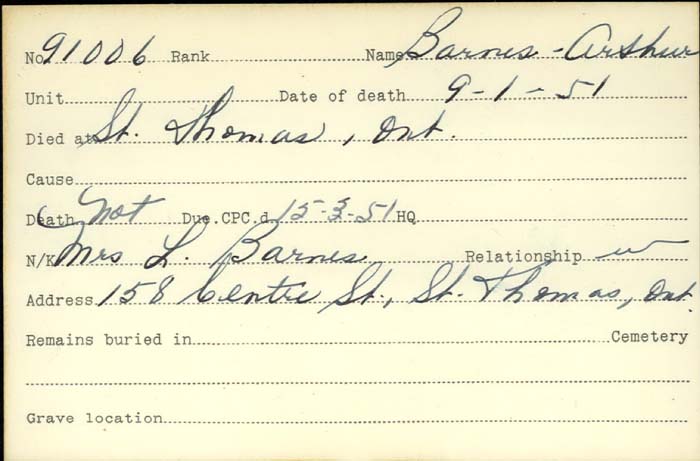 No 91006 Rank Name Barnes - Arthur
Unit Date of death 9-1-51
Died at St. Thomas, Ont.
Cause
Death not Due.CPC.d. 15-3-51 HQ
N/K Mrs L. Barnes Relationship w
Address 158 Centre St., St. Thomas, Ont.
Remains buried in Cemetery
Grave location